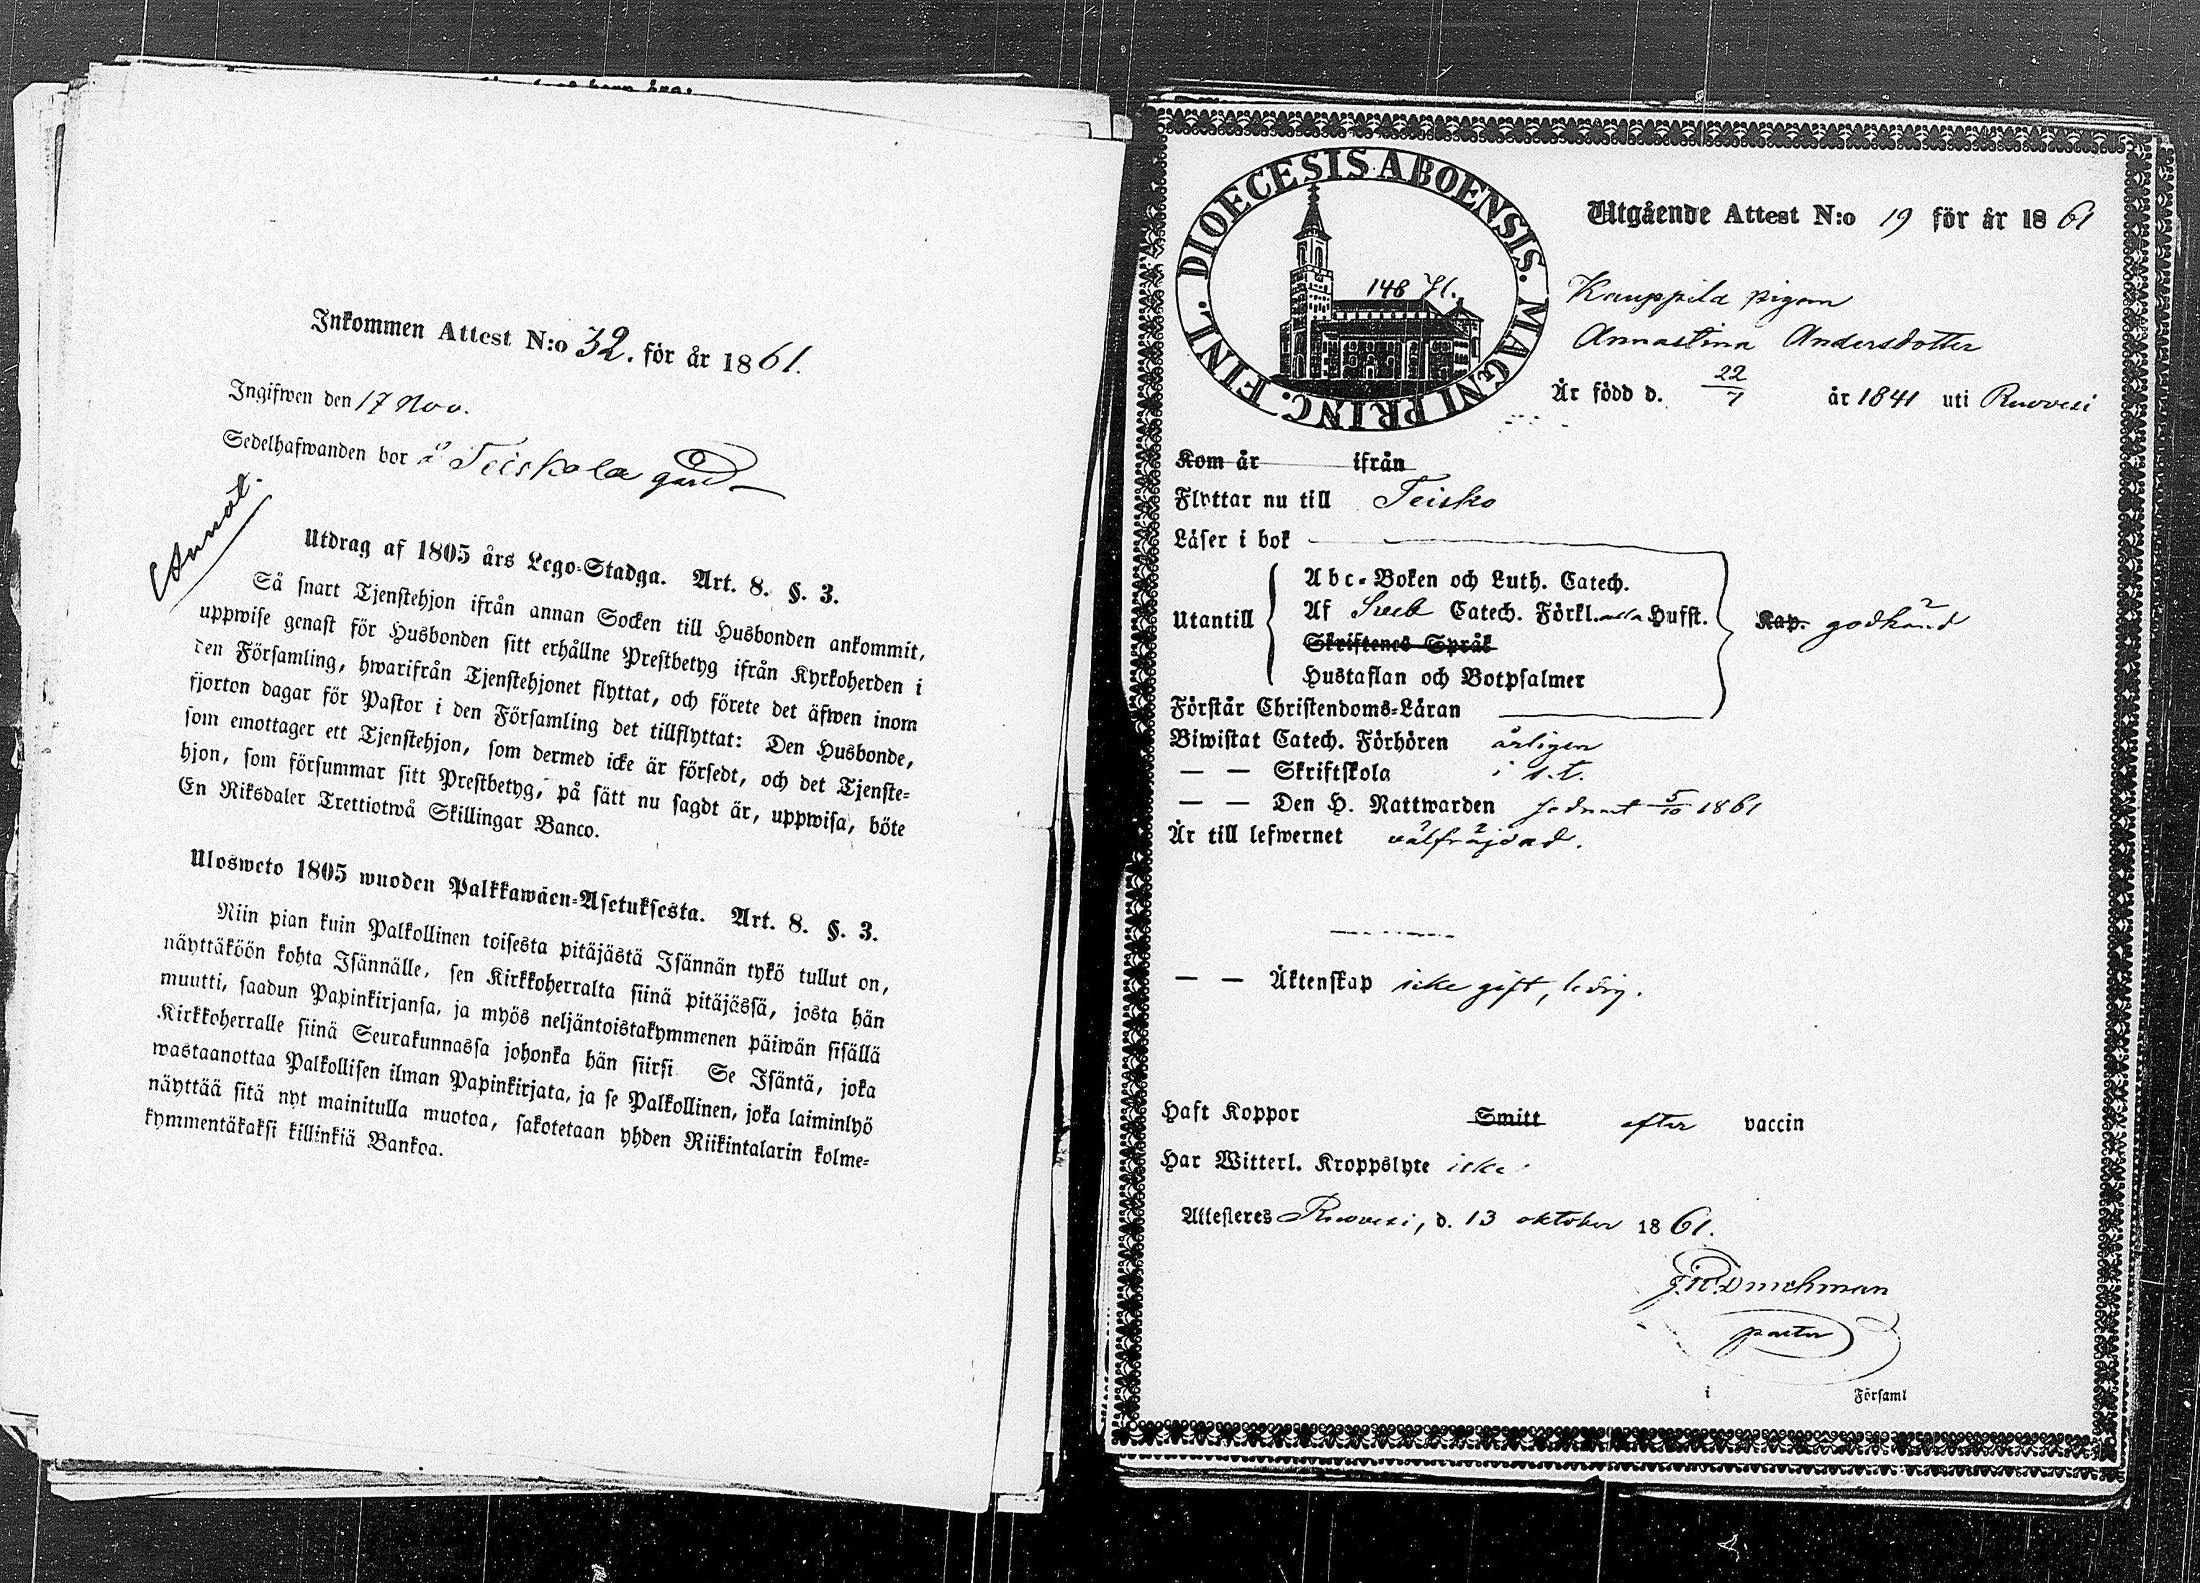 Inkommen Attest N:o 32. för år 1861.
Ingifwen den 17 Nov.
Sedelhafwanden bor å Teiskola gård
Utdrag af 1805 års Lego-Stadga. Art. 8. §. 3.
Så snart Tjenstehjon ifrån annan Socken till Husbonden ankommit,
uppwise genast för Husbonden sitt erhållne Prestbetyg ifrån Kyrkoherden i
den Församling, hwarifrån Tjenstehjonet flyttat, och förete det äfwen inom
fjorton dagar för Pastor i den Församling det tillflyttat: Den Husbonde,
som emottager ett Tjenstehjon, som dermed icke är försedt, och det Tjenste-
hjon, som försummar sitt Prestbetyg, på sätt nu sagdt är, uppwisa, böte
En Riksdaler Trettiotwå Skillingar Banco.
Ulosweto 1805 wuoden Palkkawäen-Asetuksesta. Art. 8. §. 3.
Niin pian kuin Palkollinen toisesta pitäjästä Isännän tykö tullut on,
näyttäköön kohta Isännälle, sen Kirkkoherralta siinä pitäjässä, josta hän
muutti, saadun Papinkirjansa, ja myös neljäntoistakymmenen päiwän sisällä
Kirkkoherralle siinä Seurakunnassa johonka hän siirsi Se Isäntä, joka
wastaanottaa Palkollisen ilman Papinkirjata, ja se Palkollinen, joka laiminlyö
näyttää sitä nyt mainitulla muotoa, sakotetaan yhden Riikintalarin kolme-
kymmentäkaksi killinkiä Bankoa.
DIOECESIS ABOENSIS. MAGNI PRINC. FINL.
148
Utgående Attest N:o 19 för år 1861
Kauppila pigan
Annastina Andersdotter
Är född d. 22/7 år 1841 uti Ruovesi
Kom år ifrån
Flyttar nu till Teisko
Läser i bok
Utantill
Abc-Boken och Luth. Catech.
Af Sveb Catech. Förkl. alla Hufst.
Skriftenes Språk
Hustaflan och Botpsalmer
Kap. godkänd
Förstår Christendoms-Läran
Biwistat Catech. Förhören årligen
— — Skriftskola i s.t.
— — Den H. Nattwarden sednast 5/10 1861
Är till lefwernet välfräjdad.
— — Äktenskap icke gift, ledig.
Haft Koppor Smitt efter vaccin
Har Witterl. Kroppslyte icke
Attesteres Ruovesi, d. 13 oktober 1861.
pastor
i Församl